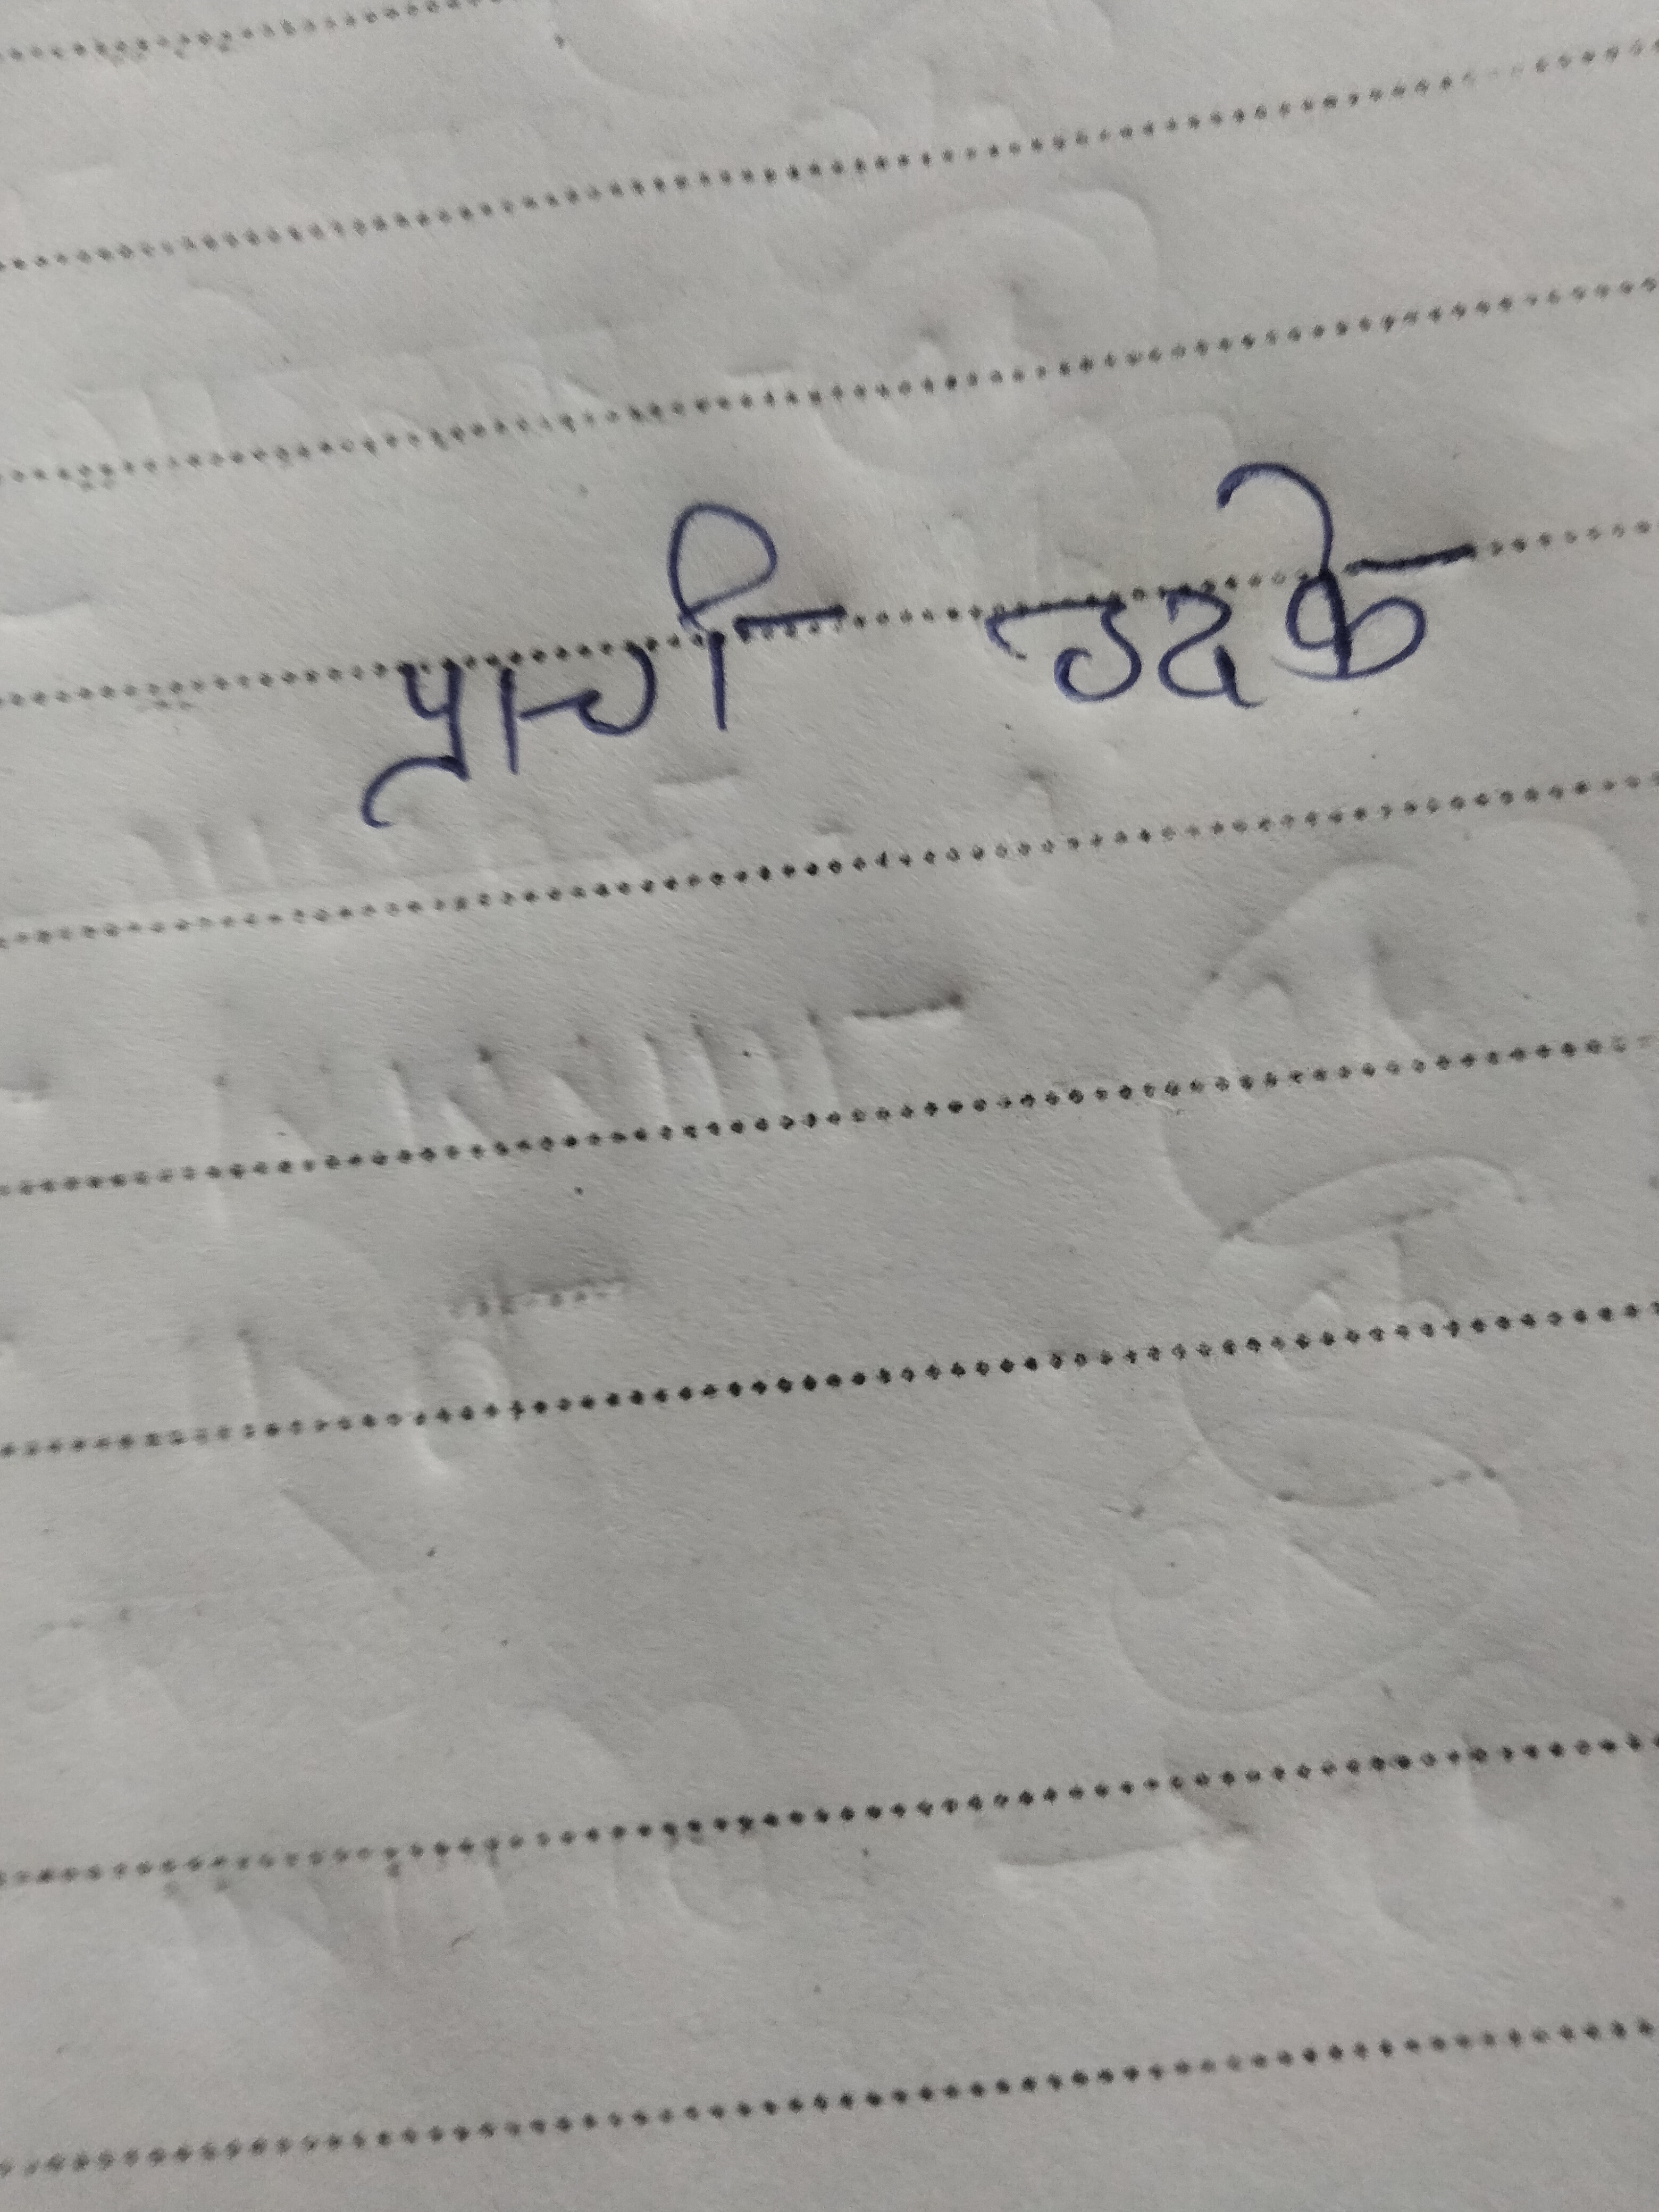 प्राची उदके